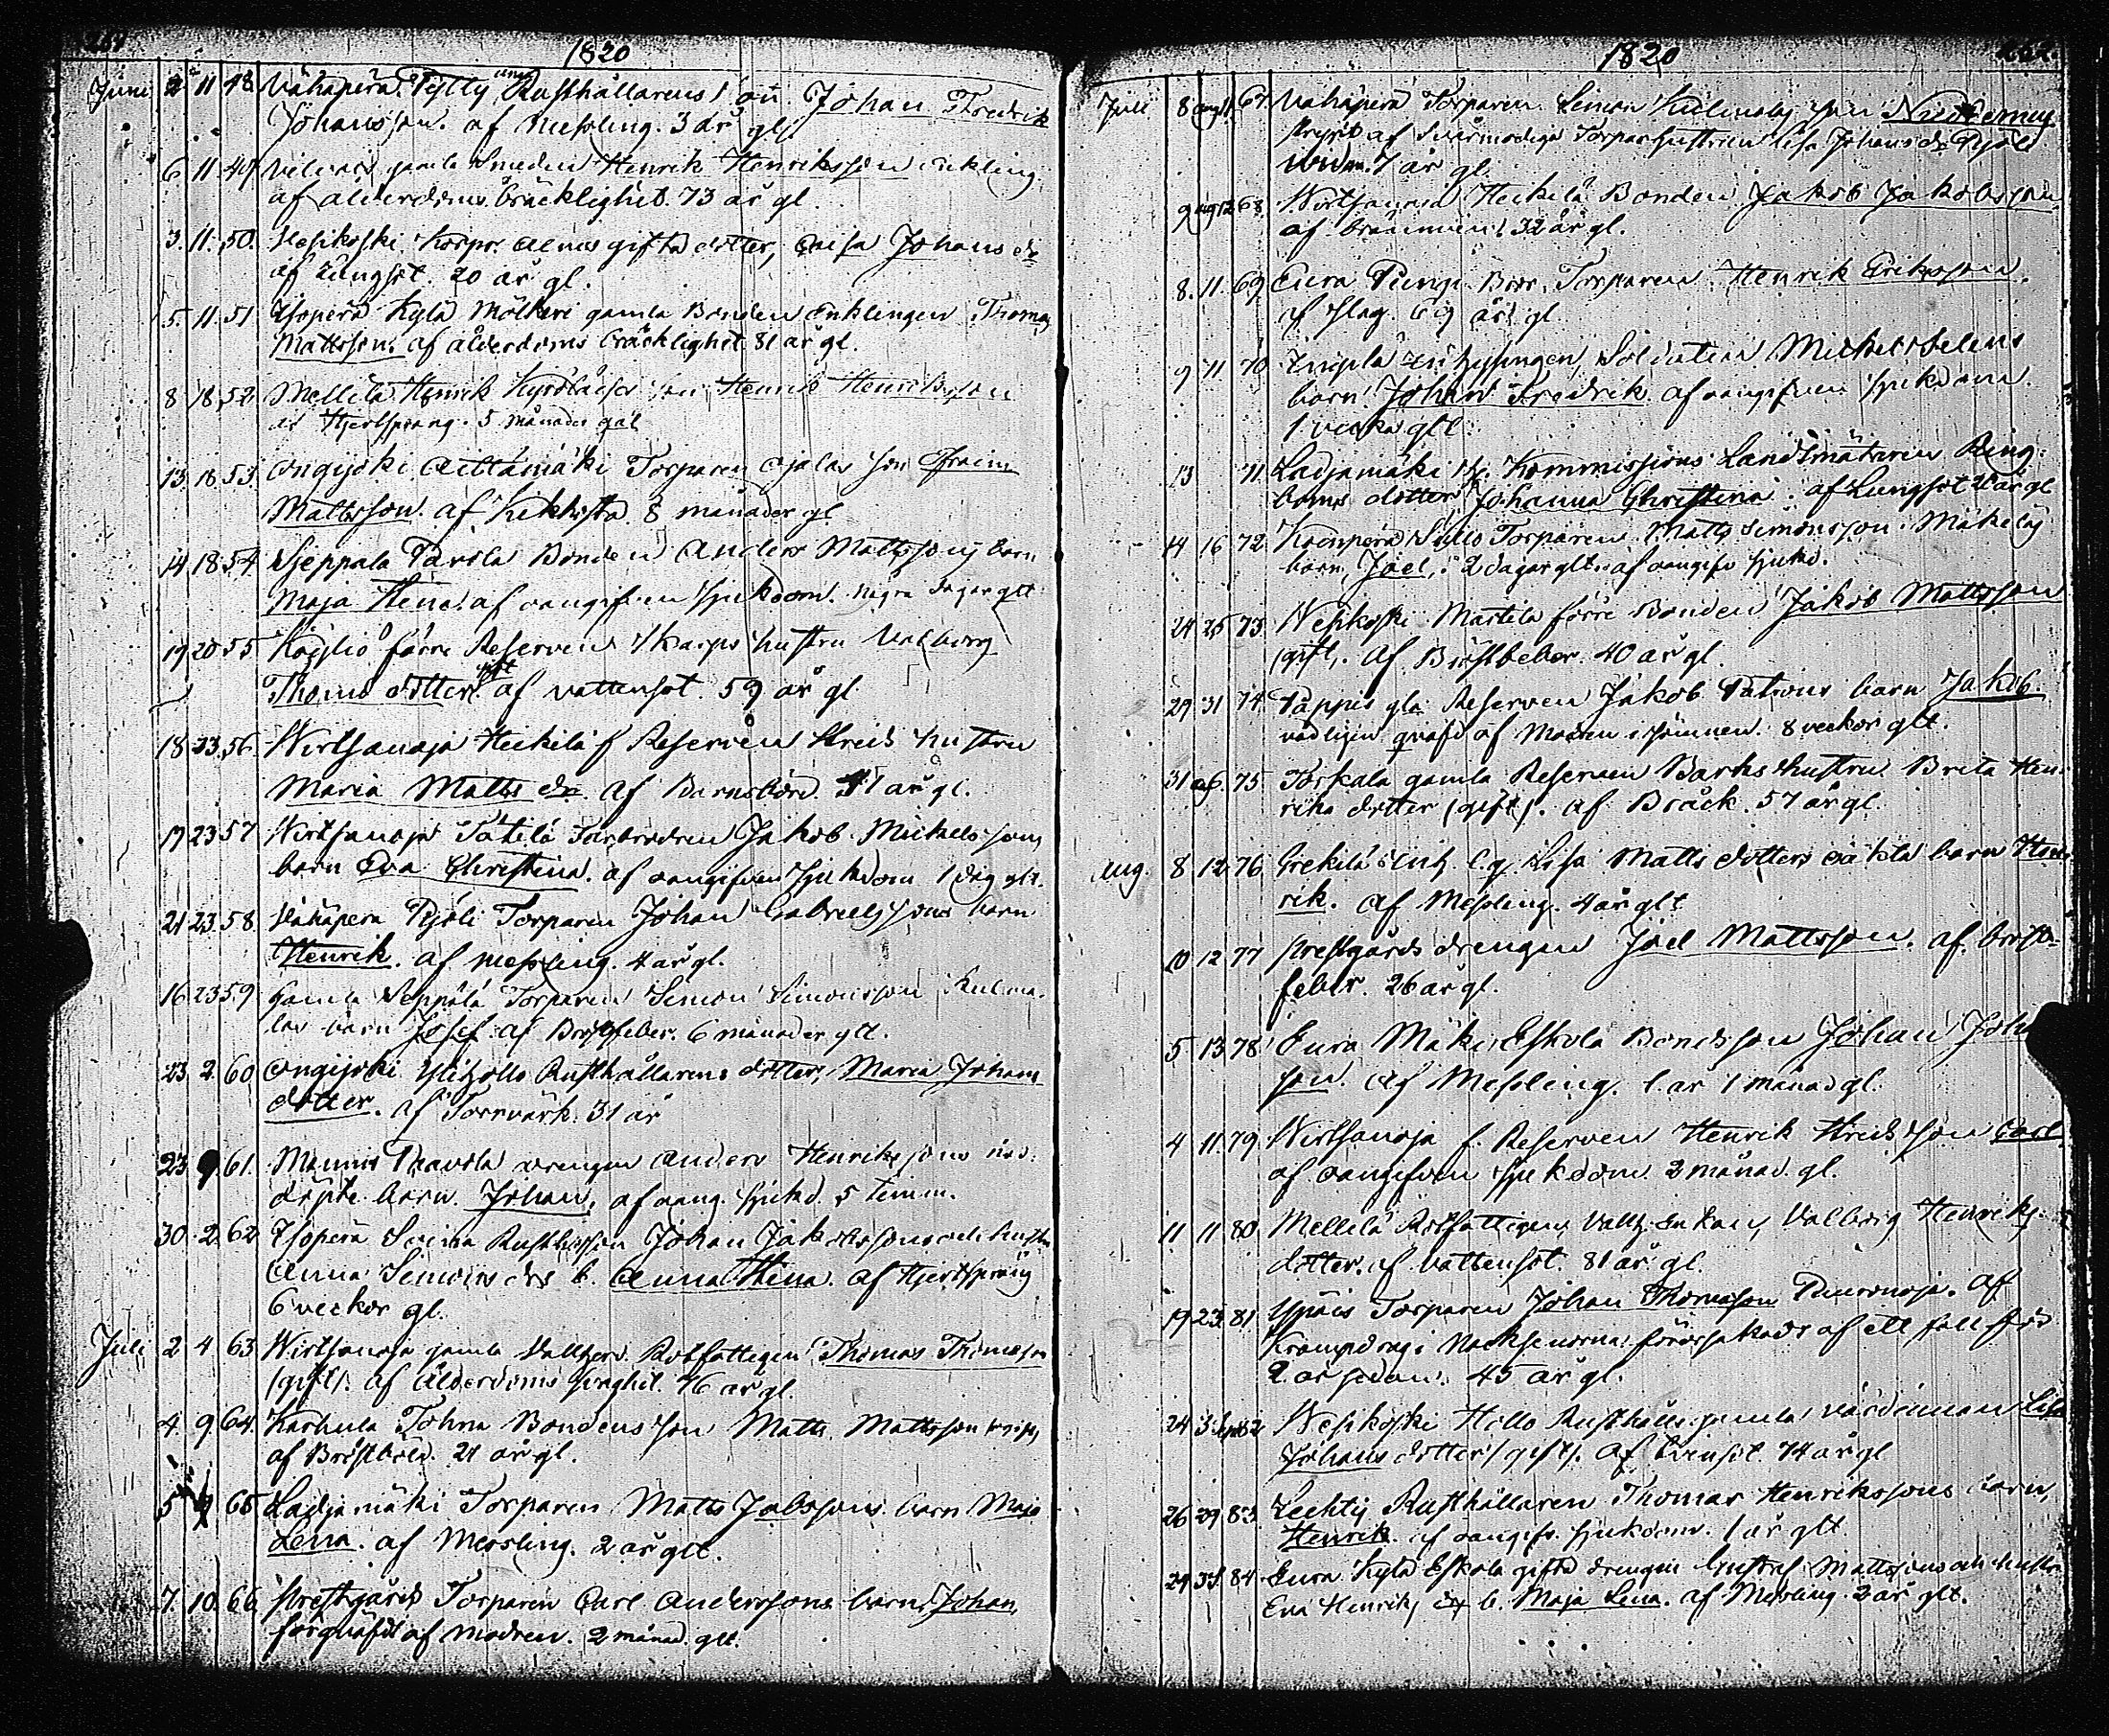 1820
Juni 2 11 48 Vähäperä Pytty Rusthållarens son Johan Fredrik
Johansson. af Messling. 3 år gl
6 11 49 gamla Smeden Henrik Henriksson enkling
af ålderdoms bräcklighet. 73 år gl
3. 11. 50. Wesikoski Korpr. gifta dotter, Caisa Johans dr
af Lungsot. 20 år gl.
5. 11. 51 Ysoperä Kylä Mölkäri gamla Bonden Enklingen Thomas
Mattsson. af ålderdoms bräcklighet 81 år gl.
8 18 52 Mellilä Henrik son Henrik Henriksson
af Hjertsprang. 5 månader gal
13. 18. 53. Ongijoki Aittamäki Torparen Ojalas son Efraim
Mattsson. af Kikhosta. 8 månader gl
14 18 54 Seppala Pavola Bonden Anders Mattssons barn
Maja Stina. af oangifven sjukdom. några dagar glt
19 20 55 Köyliö förre Reserven Skarps hustru Valborg
Thoms dotter gift af vattensot. 59 år gl
18 23. 56. Wirtsanoja Heikilä f Reserven Streds hustru
Maria Matts dr. af Barnsbörd. 41 år gl.
19 23 57 Wirtsanoja Tatila Jakob Mickelssons
barn Eva Christina. af oangifven sjukdom 1 dag glt.
21 23. 58. Vähäperä Pyöli Torparen Johan Gabrielssons barn
Henrik. af Messling. 4 år gl.
16 23 59 Gamla Seppälä Torparen Simon Simonsson Kulma-
las barn Josef. af Bröstfeber. 6 månader glt.
23. 2. 60 Ongijoki Ylitzollo Rusthållarens dotter, Maria Johans
dotter. af Torrvärk. 31 år
23 9 61. Mannis Paavola drengen Anders Henrikssons nöd-
döpte barn Johan, af oang. sjukd. 5 timm.
30. 2. 62 Ysoperä Rusth.sson Johan Jakobssons och hustru
Anna Simons drs b. Anna Stina. af Hjertsprång
6 veckor gl.
Juli 2 4 63 Wirtsanoja gamla Rotfattigen Thomas Thomasson
(gift). af Ålderdoms svaghet. 76 år gl.
4. 9. 64. Karhula Tohna Bondens son Matts Mattsson ogift,
af Bröstvärk. 21 år gl.
5 9 65 Ladjamäki Torparen Matts Jakobssons barn Maja
Lena. af Messling. 2 år glt.
7. 10. 66 Prestgårds Torparen Carl Anderssons barn, Johan,
förqväfdt af Modren. 2 månad. glt.
1820
Juli 8 aug 11. 67 Vähäperä Torparen Simon Kulmalas son
af svårmodiga Torparhustrun Lisa Johans dr Pyöli
7 år gl.
9 aug 12 68. Wirtsanoja Heikilä Bonden Jakob Jakobsson
af brännvin. 32 år gl.
8. 11. 69 Eura Pungi Torparen Henrik Eriksson.
af slag. 69 år gl
9 11 70 Soldaten Michel Selins
barn Johan Fredrik af oangifven sjukdom.
1 vecka glt.
13 71. Ladjamäki Kommissions Landtmätaren Ring-
boms dotter Johanna Christina. af Lungsot 21 år gl
14 16 72 Kaenperä Sillo Torparen Matts Simonsson Mäkeläs
barn, Joel. 2 dagar glt. af oangifv sjukd.
24 25 73 Wesikoski Martila förre Bonden Jakob Mattsson
(gift). Af Bröstfeber. 40 år gl.
29 31 74 Pappis gla Reserven Jakob Patrons barn Jakob
vådligen qväfd af Modren i sömnen. 8 veckor glt.
31 a6. 75 Torkala gamla Reserven Barks hustru Brita Hen-
riks dotter (gift). af Bråck. 57 år gl.
Aug. 8 12 76 Grekilä Inh. Lisa Matts dotters oäkta barn Hen-
rik. af Messling. 4 år glt
10 12 77 Prestgårds drengen Joel Mattsson. af bröst-
feber. 26 år gl.
5 13 78 Eura Mäki Eskola Bondsson Johan Joh
son. Af Messling. 1. år 1 månad gl.
4 11. 79 Wirtsanoja f. Reserven Henrik Streds son Carl
af oangifven sjukdom. 2 månad. gl.
11 11 80 Mellilä Rotfattigen, Enkan, Valborg Henriks-
dotter. af Vattensot. 81 år gl.
19 23. 81 Ypäis Torparen Johan Thomasson Puuronoja. af
Krampdrag i Nacksenorna förorsakadt af ett fall för
2 år sedan. 45 år gl.
24 3 Sept 82 Wesikoski Hillo Rusthålls gamla värdinnan Lisa
Johans dotter (gift). af Lungsot. 74 år gl
26 29 83 Lechtis Rusthållaren Thomas Henrikssons barn,
Henrik. af oangifv. sjukdom. 1 år glt
29 31 84. Eura Kylä Eskola gifta drengen Gustaf Mattssons och hustru
Eva Henriks dr b. Maja Lena. af Messling. 2 år glt.